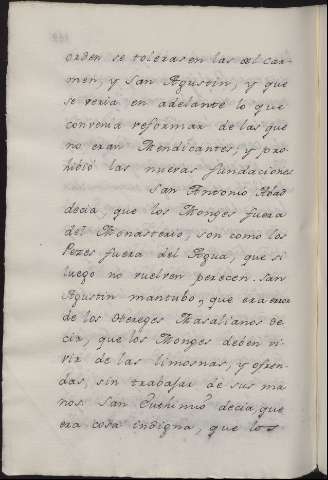 orden se tolerasen las del Car-
men, y San Agustin, y que
se veria en adelante lo que
convenia reformar de las que
no eran Mendicantes, y pro-
hibió las nuevas fundaciones
San Antonio Abad
decia, que los Monges fuera
del Monasterio, son como los
Pezes fuera del Agua, que si
luego no vuelven perecen. San
Agustin mantubo, que era error
de los Hereges Masalianos de-
cir, que los Monges deben vi-
vir de las limosnas, y ofren-
das, sin trabajar de sus ma-
nos. San Euthimio decia, que
era cosa indigna, que los